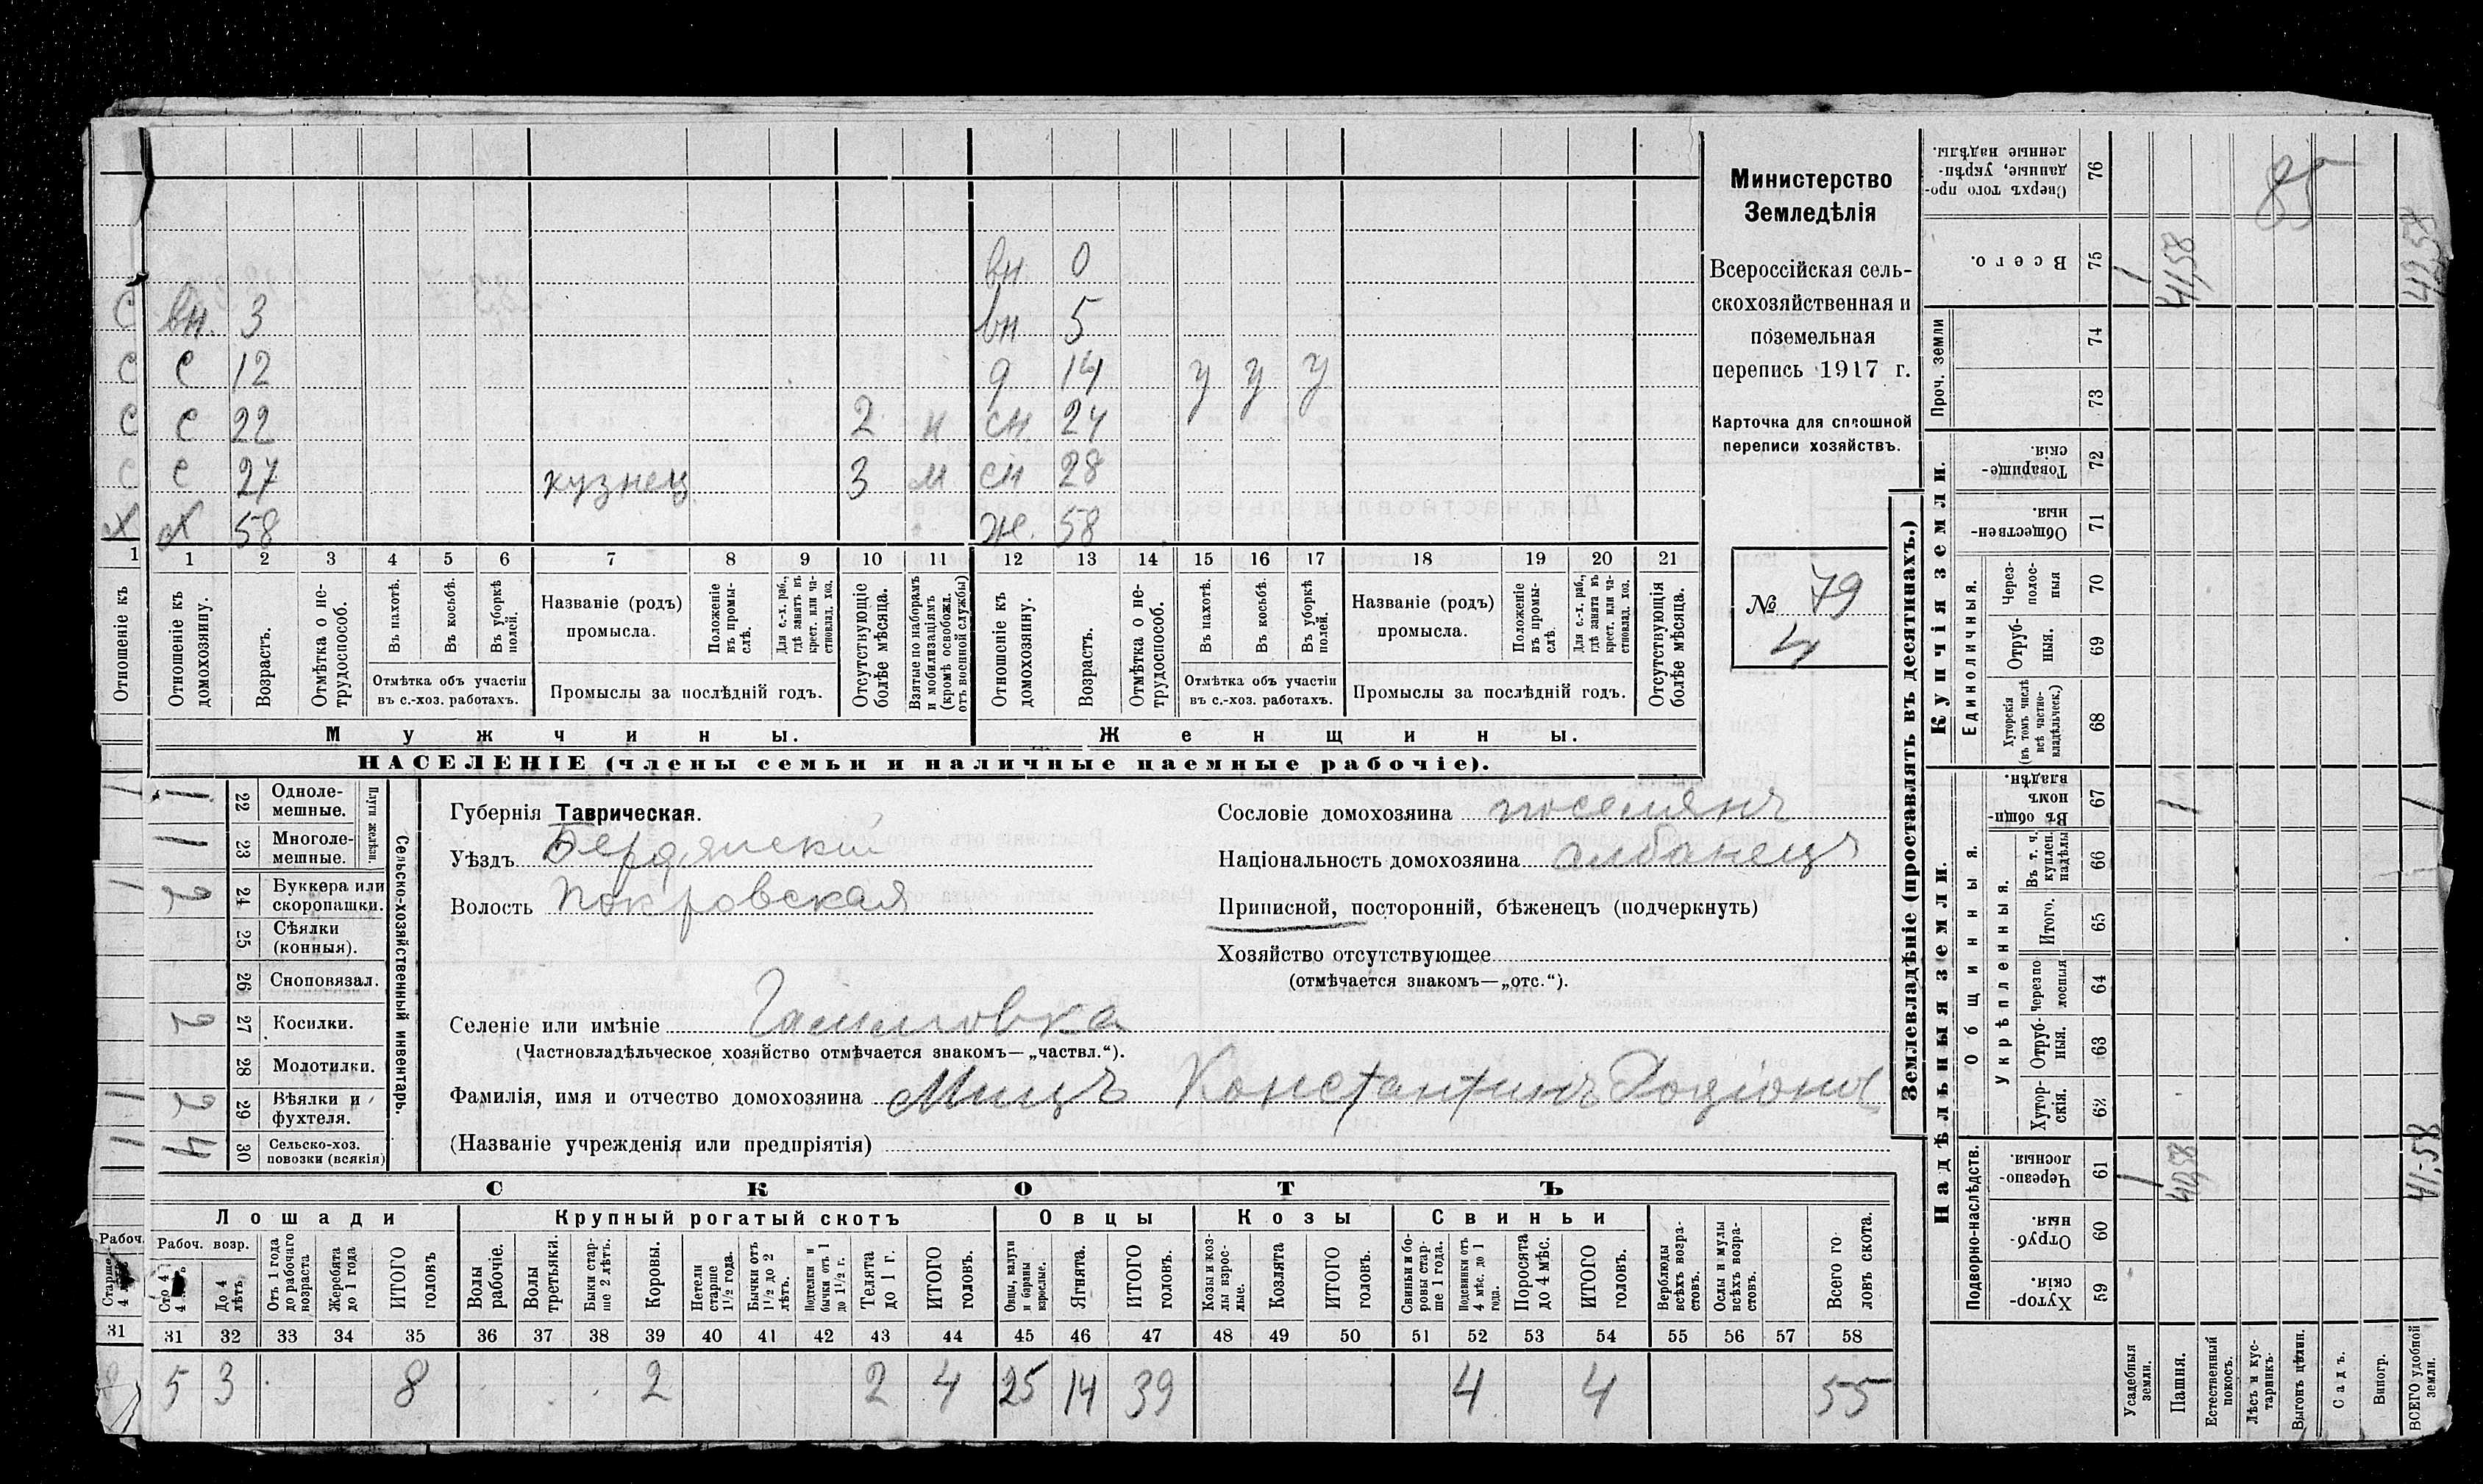 вн 0
С вн. 3 вн 5
С С 12 д 14 у у у
С С 22 2 н сн. 24
С С 27 кузнец 3 м сн 28
Х Х 58 же. 58
1 1 2 3 4 5 6 7 8 9 10 11 12 13 14 15 16 17 18 19 20 21
Отношеніе къ
Отношеніе къ домохозяину.
Возрастъ.
Отмѣтка о не-трудоспособ.
Въ пахотѣ.
Въ косьбѣ.
Въ уборкѣ полей.
Отмѣтка объ участіи
въ с.-хоз. работахъ.
Названіе (родъ)
промысла.
Положеніе въ промы-слѣ.
Для с.-х. раб., гдѣ занятъ въ крест. или ча-стновлад. хоз.
Промыслы за послѣдній годъ.
Отсутствующіе болѣе мѣсяца.
Взятые по наборамъ и мобилизаціямъ (кромѣ освобожд. отъ военной службы)
Отношеніе къ домохозяину.
Возрастъ.
Отмѣтка о не-трудоспособ.
Въ пахотѣ.
Въ косьбѣ.
Въ уборкѣ полей.
Отмѣтка объ участіи
въ с.-хоз. работахъ.
Названіе (родъ)
промысла.
Положеніе въ промы-слѣ.
Для с.-х. раб., гдѣ занята въ крест. или ча-стновлад. хоз.
Промыслы за послѣдній годъ.
Отсутствующія болѣе мѣсяца.
Мужчины.
Женщины.
НАСЕЛЕНІЕ (члены семьи и наличные наемные рабочіе).
Министерство
Земледѣлія
Всероссійская сель-
скохозяйственная и
поземельная
перепись 1917 г.
Карточка для сплошной
переписи хозяйствъ.
№ 79
4
Сельско-хозяйственный инвентарь.
Плуги желѣзн.
1 1 22 Одноле-мешные.
1 23 Многоле-мешные.
1 2 24 Буккера или скоропашки.
25 Сѣялки (конныя).
26 Сноповязал.
2 27 Косилки.
28 Молотилки.
1 2 29 Вѣялки и фухтеля.
1 4 30 Сельско-хоз. повозки (всякія)
Губернія Таврическая.
Уѣздъ Бердянскій
Волость Покровская
Селеніе или имѣніе Гаммовка
(Частновладѣльческое хозяйство отмѣчается знакомъ—„частвл.“).
Фамилія, имя и отчество домохозяина Мицъ Константинъ Родіонов
(Названіе учрежденія или предпріятія)
Сословіе домохозяина поселянъ
Національность домохозяина албанецъ
Приписной, посторонній, бѣженецъ (подчеркнуть)
Хозяйство отсутствующее
(отмѣчается знакомъ—„отс.“).
СКОТЪ
Лошади
Крупный рогатый скотъ
Овцы
Козы
Свиньи
Рабоч.
Старше 4 лѣтъ
Рабоч. возр.
До 4 лѣтъ.
Отъ 1 года до рабочаго возраста
Жеребята до 1 года
ИТОГО головъ
Волы рабочіе.
Волы третьяки.
Быки стар-ше 2 лѣтъ.
Коровы.
Нетели старше 1 1/2 года.
Бычки отъ 1 1/2 до 2 лѣтъ.
Подтелки и бычки отъ 1 до 1 1/2 г.
Телята до 1 г.
ИТОГО головъ.
Овцы, валухи и бараны взрослые.
Ягнята.
ИТОГО головъ.
Козы и коз-лы взрос-лые.
Козлята
ИТОГО головъ.
Свиньи и бо-ровы стар-ше 1 года.
Подсвинки отъ 4 мѣс. до 1 года.
Поросята до 4 мѣс.
ИТОГО головъ.
Верблюды всѣхъ возра-стовъ.
Ослы и мулы всѣхъ возра-стовъ.
Всего го-ловъ скота.
31 31 32 33 34 35 36 37 38 39 40 41 42 43 44 45 46 47 48 49 50 51 52 53 54 55 56 57 58
5 3 8 2 2 4 25 14 39 4 4 55
Землевладѣніе (проставлять въ десятинахъ.)
Купчія земли.
Надѣльныя земли.
Сверхъ того про-данные, укрѣп-ленные надѣлы. 76
85
Всего. 75 1 41,58 42,58
Проч. земли 74
73
Товарище-скія. 72
Обществен-ныя. 71
Единоличныя.
Через-полос-ныя 70
Отруб-ныя. 69
Хуторскія (въ томъ числѣ всѣ частно-владѣльческ.) 68
Общинныя.
Въ общин-номъ владѣн. 67 1 1
Въ т. ч. куплен. надѣлы 66
Укрѣпленныя.
Итого. 65
Черезпо-лосныя 64
Отруб-ныя. 63
Хутор-скія. 62
Подворно-наслѣдств.
Черезпо-лосныя. 61 1 40,58 41,58
Отруб-ныя. 60
Хутор-скія. 59
Усадебныя земли.
Пашня.
Естественный покосъ.
Лѣсъ и кус-тарникъ.
Выгонъ цѣлин.
Садъ.
Виногр.
ВСЕГО удобной земли.